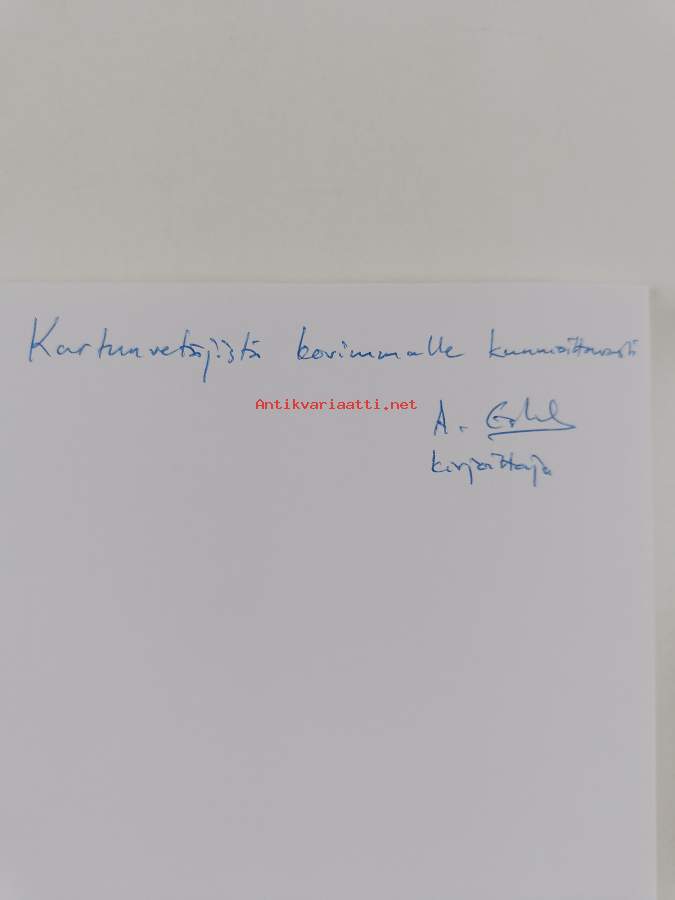 Kartunvetäjistä kovimmalle kunnioittavasti
Antikvariaatti.net
A.
kirjoittaja